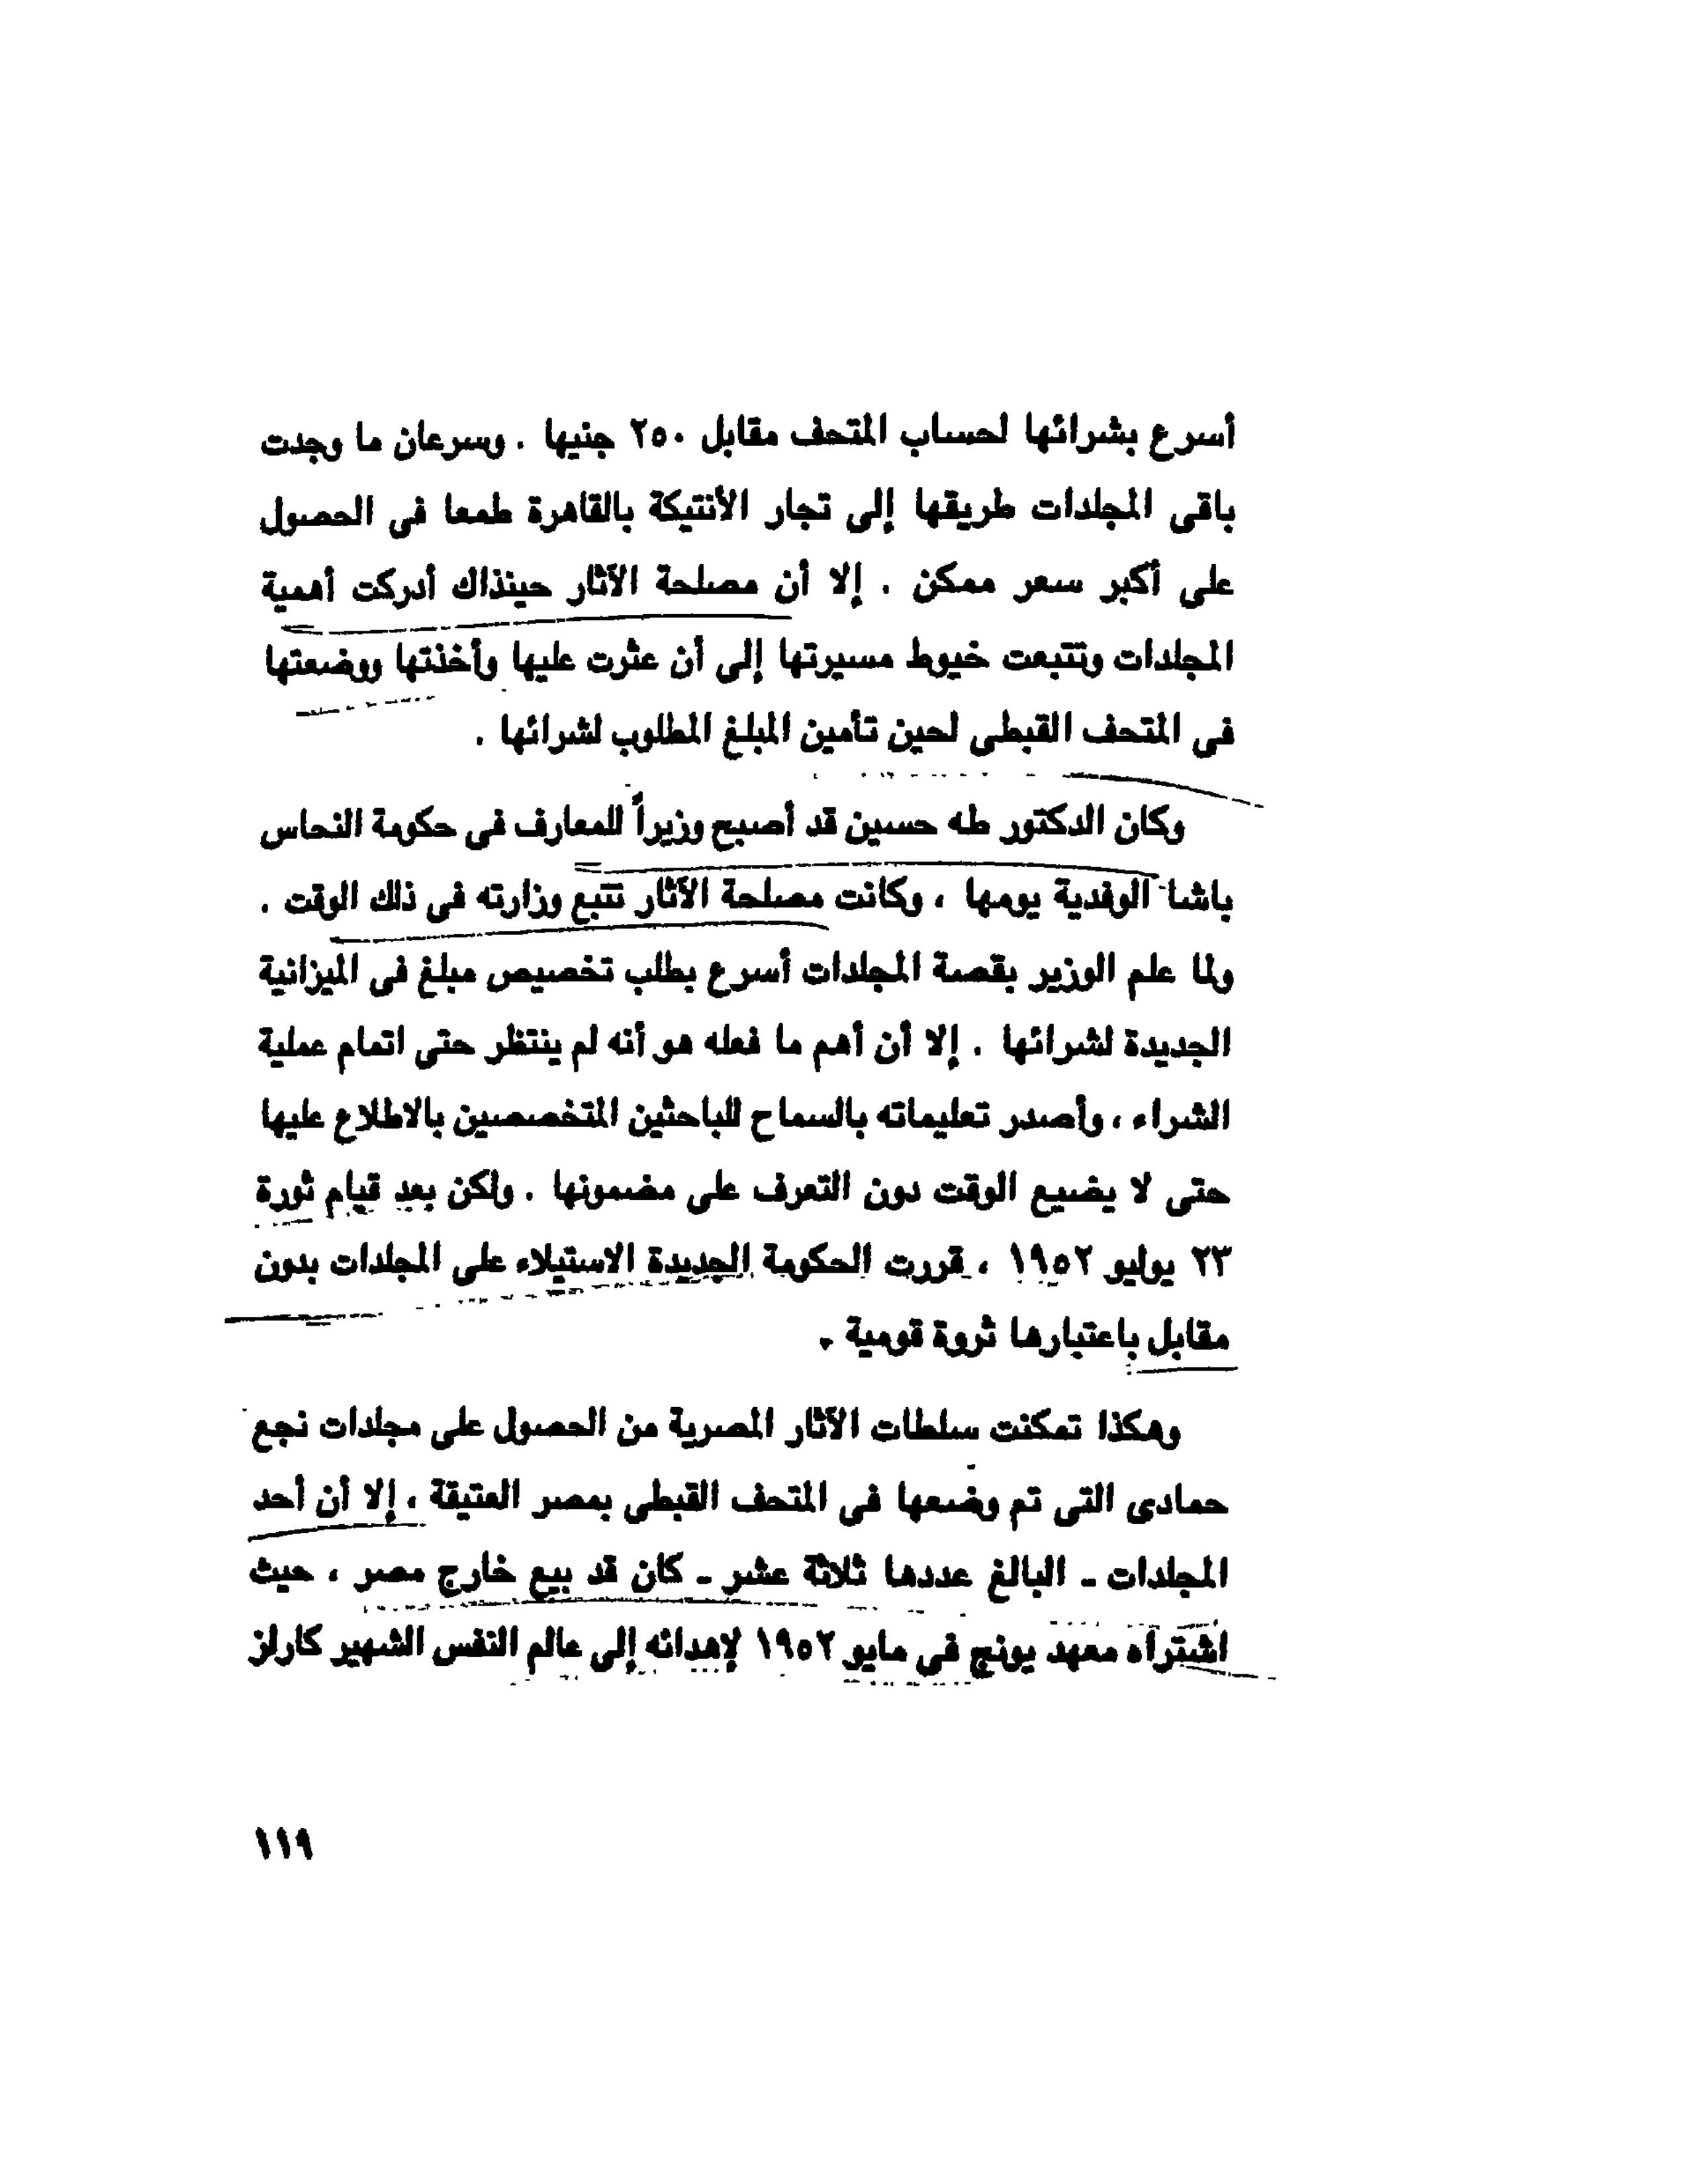 أسرع بشرائها لحساب المتحف مقابل ٢٥٠ جنيها . وسرعان ما وجدت
باقى المجلدات طريقها إلى تجار الأنتيكة بالقاهرة طمعا فى الحصول
على أكبر سعر ممكن . إلا أن مصلحة الآثار حينذاك أدركت أهمية
المجلدات وتتبعت خيوط مسيرتها إلى أن عثرت عليها وأخذتها ووضعتها
فى المتحف القبطى لحين تأمين المبلغ المطلوب لشرائها .
وكان الدكتور طه حسين قد أصبح وزيراً للمعارف فى حكومة النحاس
باشا الوفدية يومها ، وكانت مصلحة الآثار تتبع وزارته فى ذلك الوقت .
ولما علم الوزير بقصة المجلدات أسرع بطلب تخصيص مبلغ فى الميزانية
الجديدة لشرائها . إلا أن أهم ما فعله هو أنه لم ينتظر حتى اتمام عملية
الشراء ، وأصدر تعليماته بالسماح للباحثين المتخصصين بالاطلاع عليها
حتى لا يضيع الوقت دون التعرف على مضمونها . ولكن بعد قيام ثورة
٢٣ يوليو ١٩٥٢ ، قررت الحكومة الجديدة الاستيلاء على المجلدات بدون
مقابل باعتبارها ثروة قومية .
وهكذا تمكنت سلطات الآثار المصرية من الحصول على مجلدات نجع
حمادى التى تم وضعها فى المتحف القبطى بمصر العتيقة ، إلا أن أحد
المجلدات - البالغ عددها ثلاثة عشر - كان قد بيع خارج مصر ، حيث
اشتراه معهد يونج فى مايو ١٩٥٢ لإهدائه إلى عالم النفس الشهير كارلز
١١٩